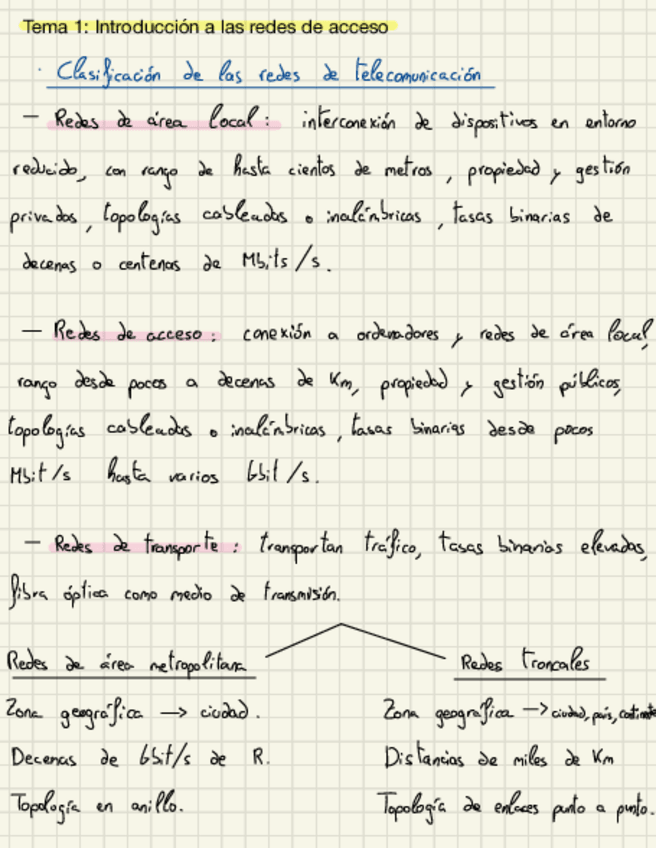 Tema 1: Introducción a las redes de acceso
· Clasificación de las redes de telecomunicación
— Redes de área local: interconexión de dispositivos en entorno
reducido, con rango de hasta cientos de metros, propiedad y gestión
privados, topologías cableadas o inalámbricas, tasas binarias de
decenas o centenas de Mbits/s.
— Redes de acceso: conexión a ordenadores y redes de área local,
rango desde pocos a decenas de Km, propiedad y gestión públicos,
topologías cableadas o inalámbricas, tasas binarias desde pocos
Mbit/s hasta varios Gbit/s.
— Redes de transporte: transportan tráfico, tasas binarias elevadas,
fibra óptica como medio de transmisión.
Redes de área metropolitana
Zona geográfica → ciudad.
Decenas de Gbit/s de R.
Topología en anillo.
Redes troncales
Zona geográfica → ciudad, país, continente
Distancias de miles de Km
Topología de enlaces punto a punto.